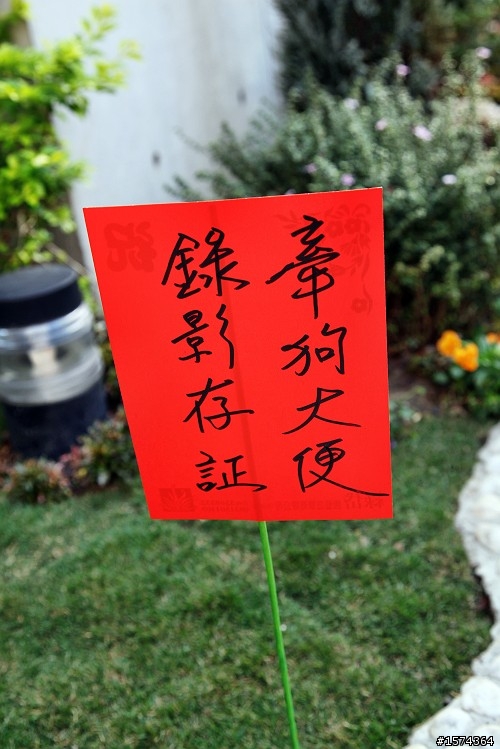 牽狗大便
錄影存証
#1574364